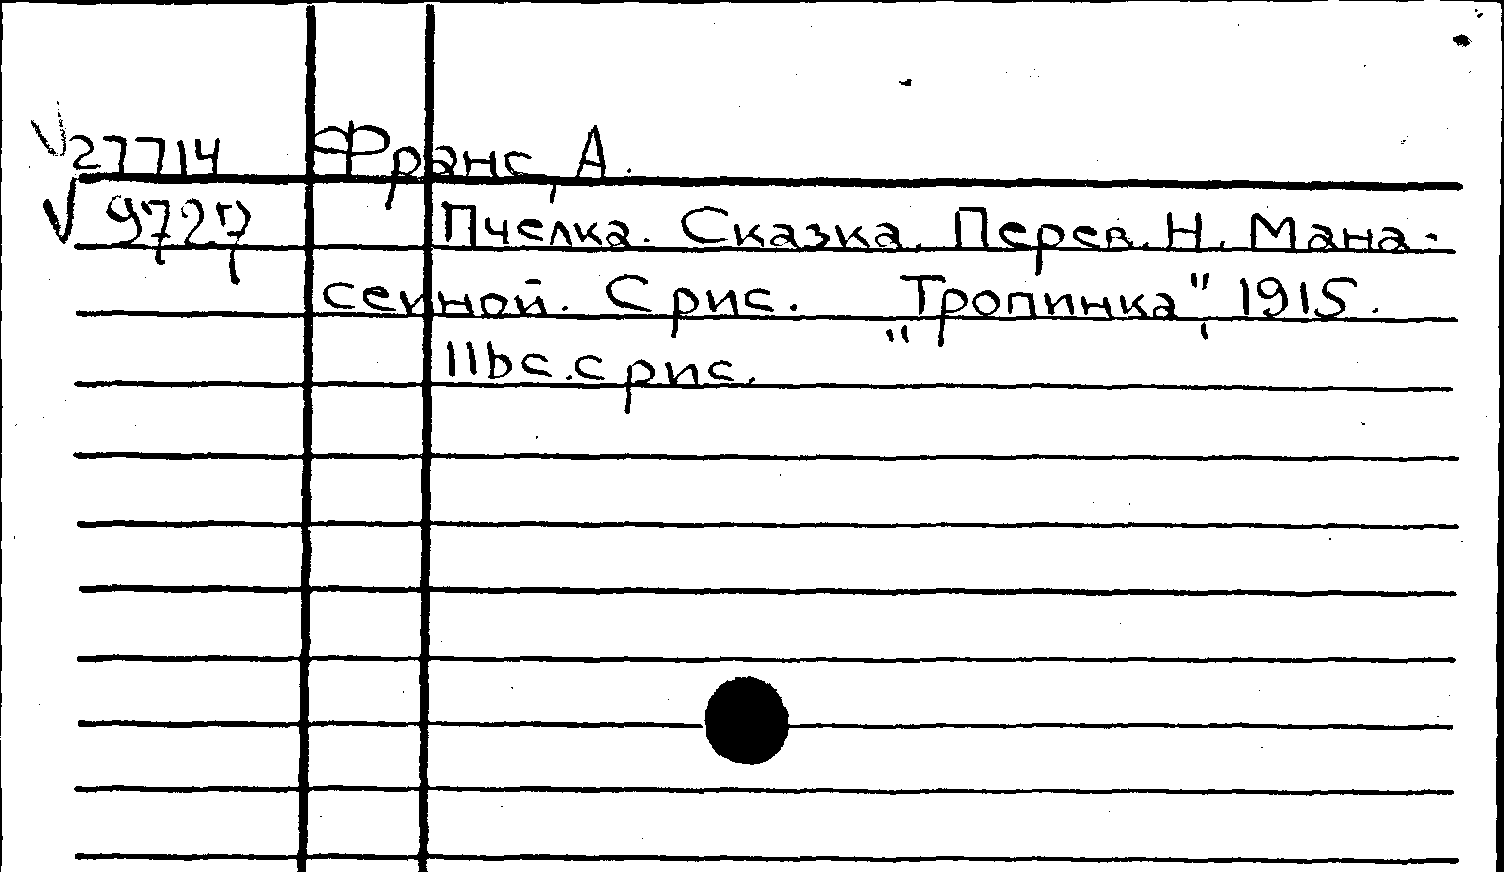 √27714 Франс, А.
√ 9727 Пчелка. Сказка. Перев. Н. Мана-
сеиной. С рис. „Тропинка", 1915.
116 с. с рис.